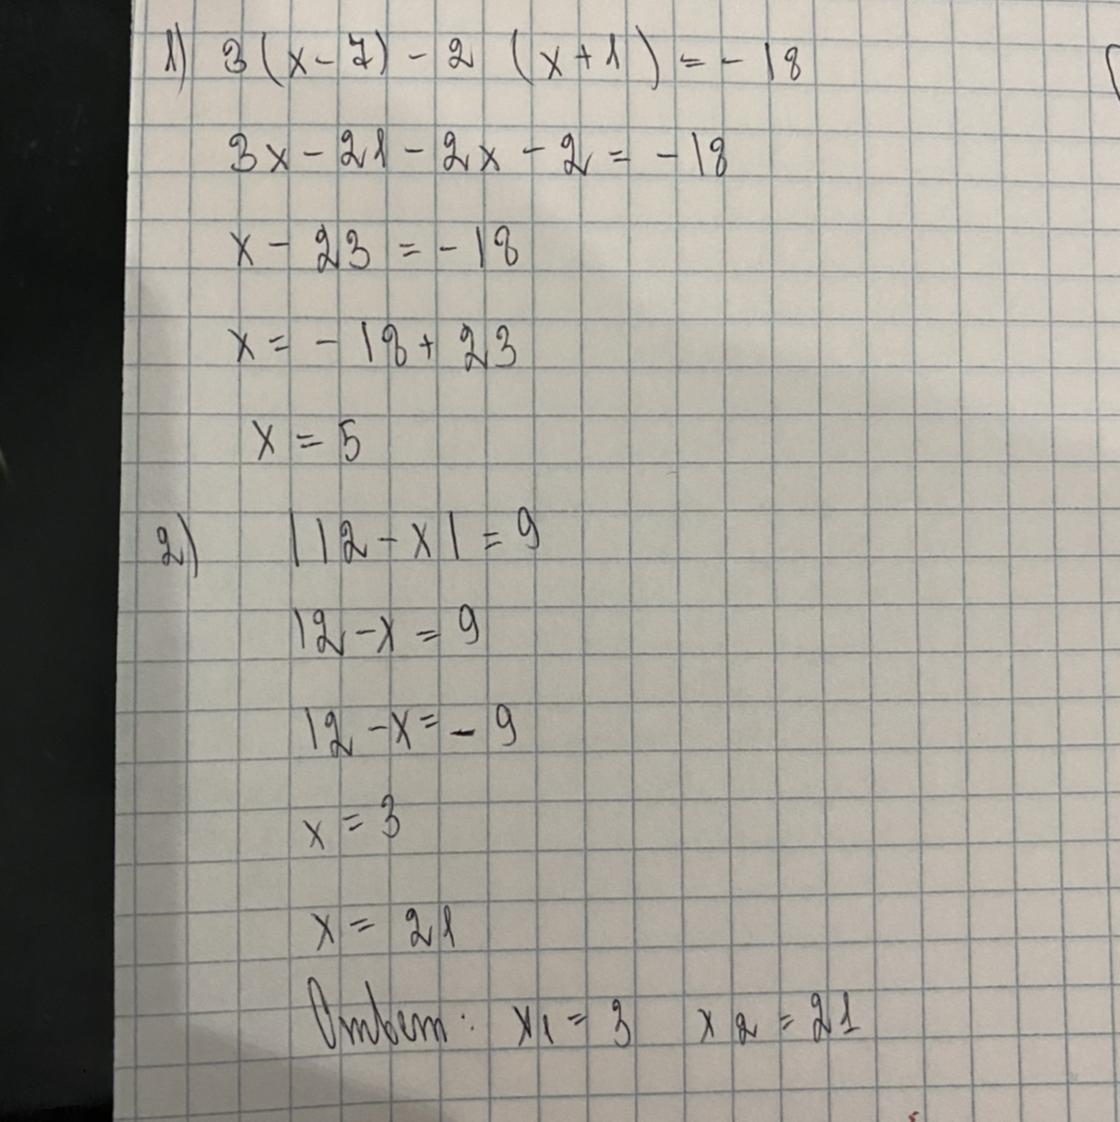 1) 3(x-7)-2(x+1)=-18
3x-21-2x-2=-18
x-23=-18
x=-18+23
x=5
2) |12-x|=9
12-x=9
12-x=-9
x=3
x=21
Ответ: x1=3 x2=21